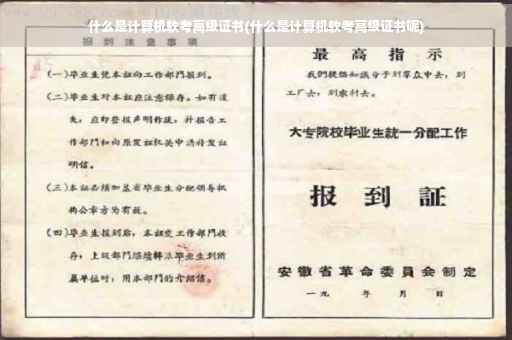 什么是计算机软考高级证书(什么是计算机软考高级证书呢)
报到注意事项
(一)毕业生凭本证向工作部門报到。
(二)毕业生对本证应注意保存。如有遺
失,应即登报声明作废,并报告工
作部門和向原发证机关申請补发证
明信。
(三)本证必须加盖省毕业生分配領导机
构公章方为有效。
(四)毕业生报到后,本证交工作部門收
存,上級部門繼續轉派毕业生到所
属单位时,用本部門的介紹信。
最高指示
我們提倡知識分子到羣众中去,到
工厂去,到农村去。
大专院校毕业生統一分配工作
报到証
安徽省革命委員会制定
一九 年 月 日